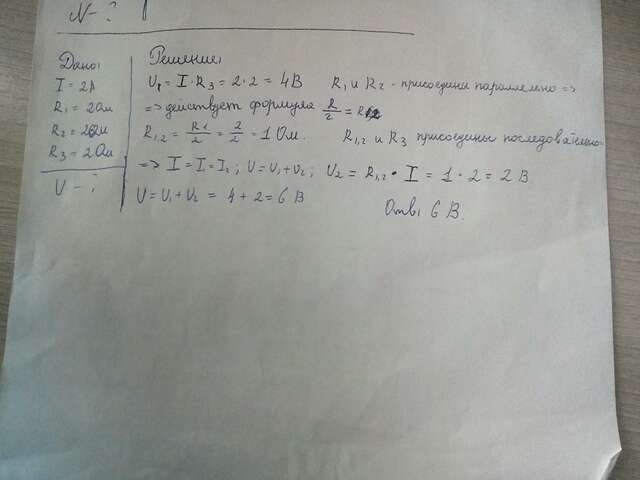 N - ?
Дано:
I = 2А
R1 = 2Ом
R2 = 2Ом
R3 = 2Ом
U - ?
Решение:
U1 = I · R3 = 2 · 2 = 4В R1 и R2 - присоедины параллельно =>
=> действует формула R/2 = R1,2
R1,2 = R1/2 = 2/2 = 1 Ом. R1,2 и R3 присоедины последовательно
=> I = I1 = I2; U = U1 + U2; U2 = R1,2 · I = 1 · 2 = 2 В
U = U1 + U2 = 4 + 2 = 6 В
Отв: 6 В.